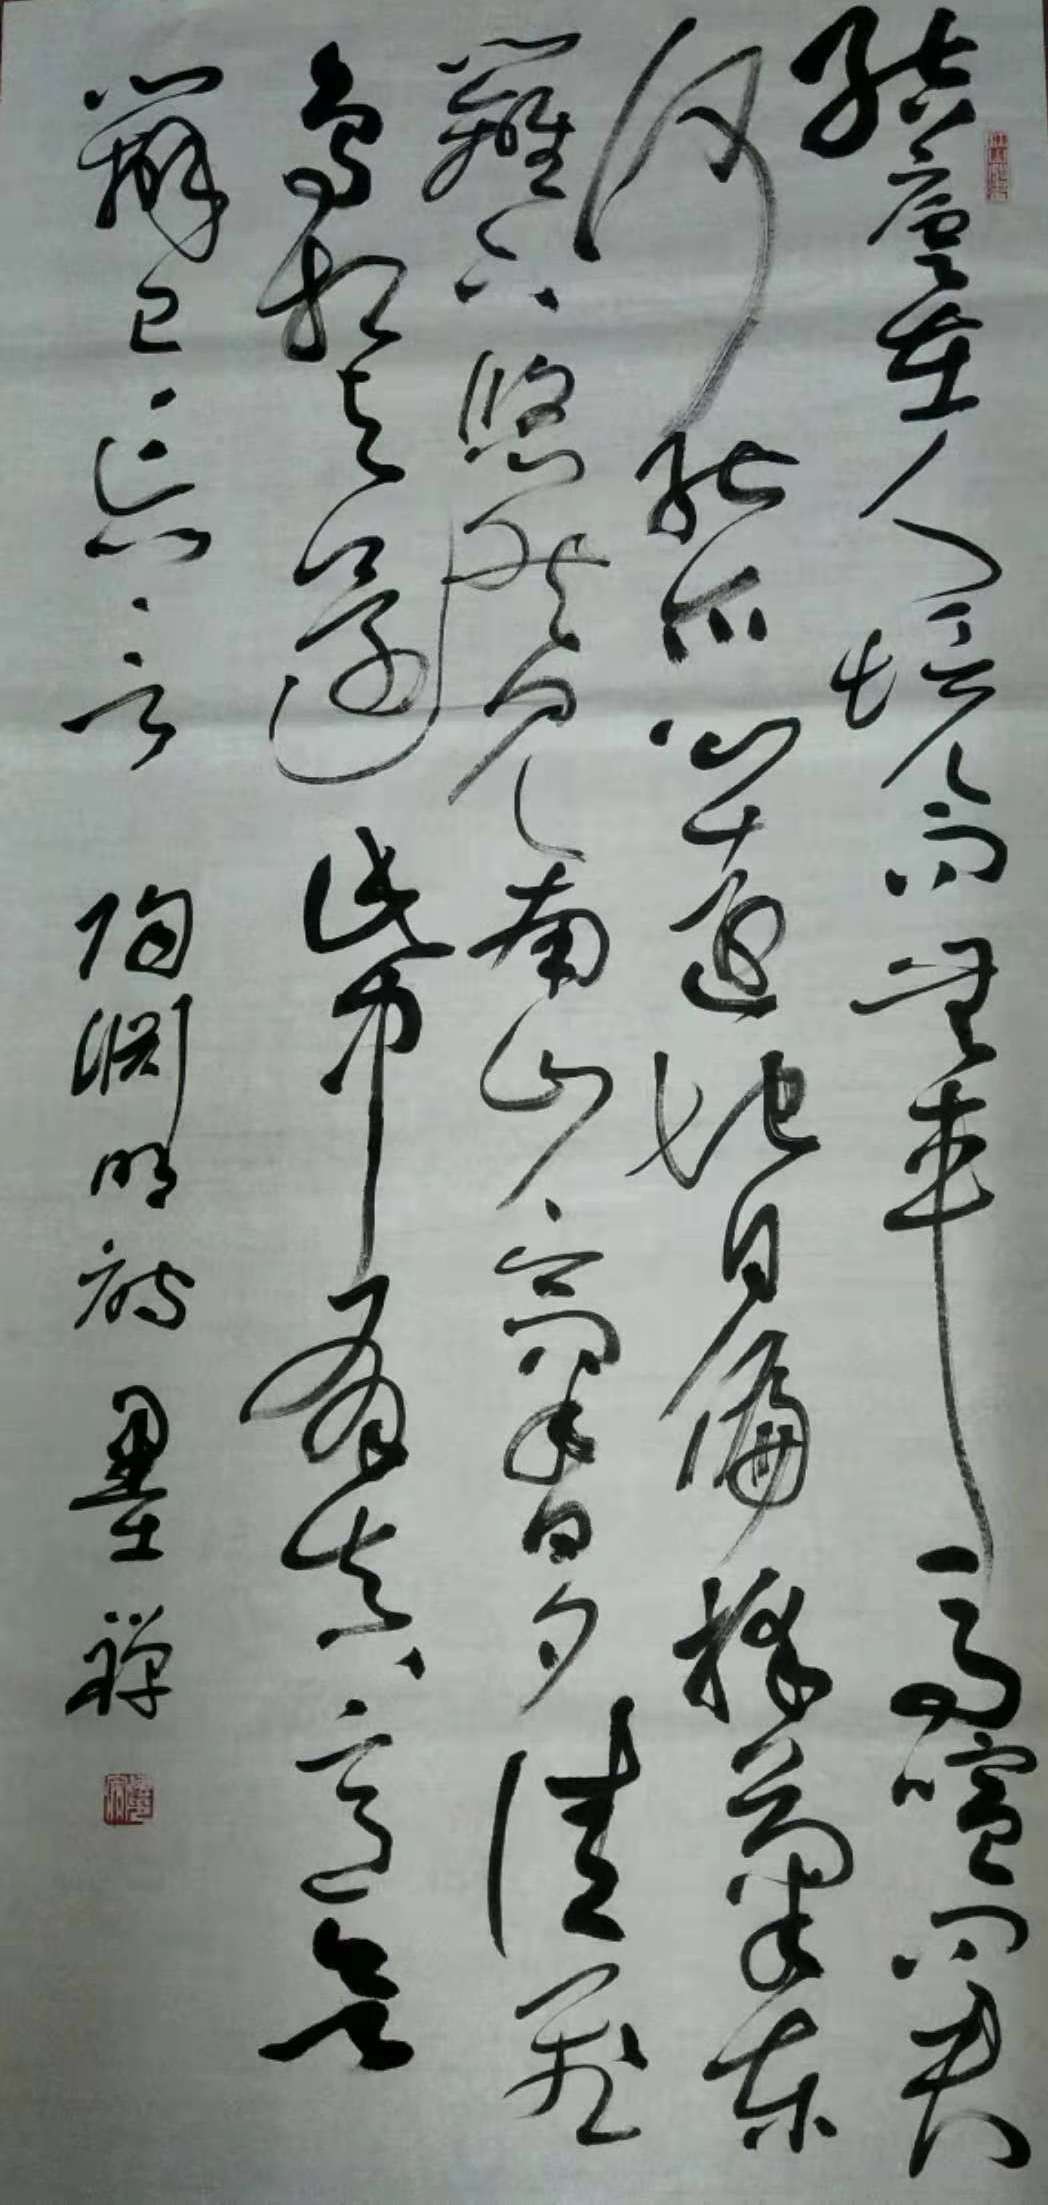 结廬在人境而無車馬喧問君
何能尔心遠地自偏採菊東
籬下悠然見南山山氣日夕佳飛
鳥相与還此中有真意欲
辨已忘言 陶渊明诗 墨禅